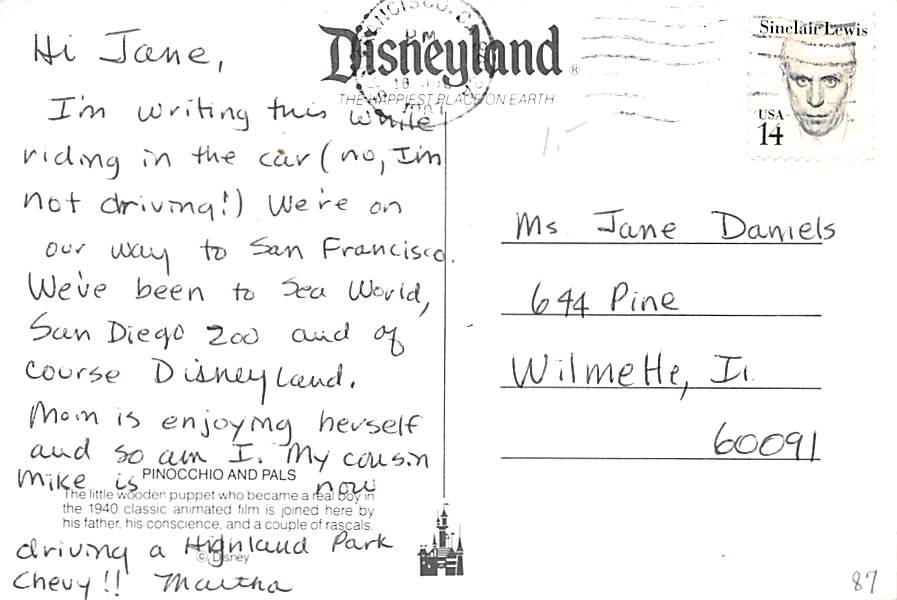 Hi Jane,
I'm writing this while
riding in the car (no, I'm
not driving!) We're on
our way to San Francisco.
We've been to Sea World,
San Diego Zoo and of
course Disneyland.
Mom is enjoying herself
and so am I. My cousin
Mike is now
driving a Highland Park
Chevy!! Martha
PINOCCHIO AND PALS
The little wooden puppet who became a real boy in
the 1940 classic animated film is joined here by
his father, his conscience, and a couple of rascals.
© Disney
Disneyland®
THE HAPPIEST PLACE ON EARTH
PM
Sinclair Lewis
USA
14
1.-
Ms Jane Daniels
644 Pine
Wilmette, Il
60091
87